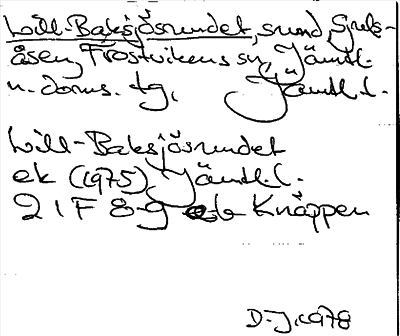 Lill-Baksjösundet, sund, Gjels-
åsen, Frostvikens sn, Jämtl.
n. doms. tg, Jämtl. l.
Lill-Baksjösundet
ek (1975) Jämtl. l.
21F 8-9 a-b Knäppen
D-J. 1978